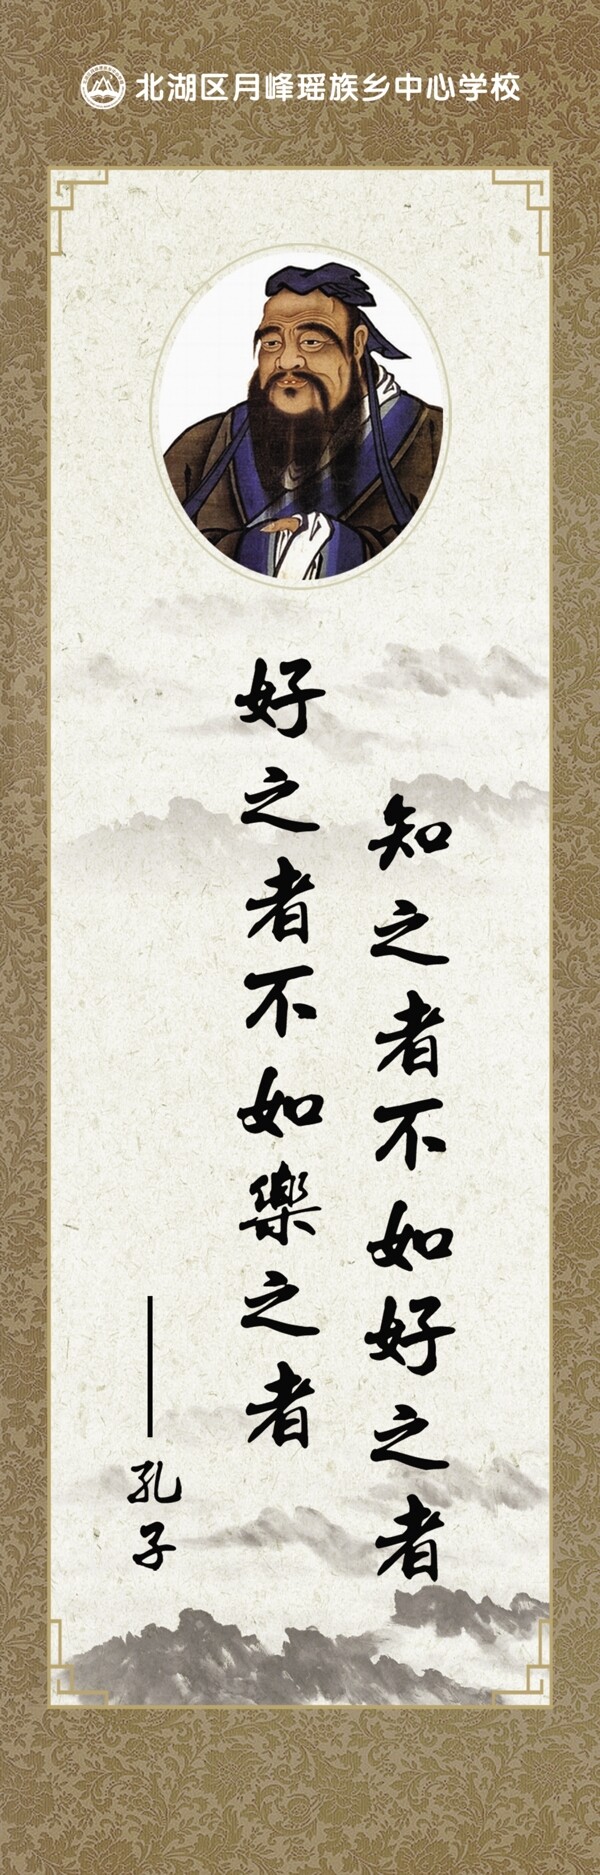 北湖区月峰瑶族乡中心学校
知之者不如好之者
好之者不如樂之者
——孔子